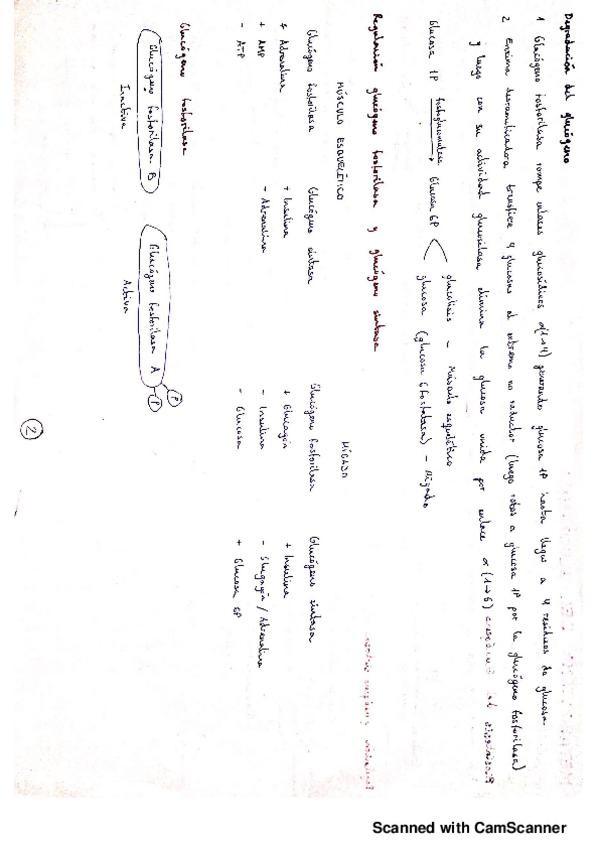 Degradación del glucógeno
1 Glucógeno fosforilasa rompe enlaces glucosídicos α(1→4) generando glucosa 1P hasta llegar a 4 residuos de glucosa.
2. Enzima desramificadora transfiere 4 glucosas al extremo no reductor (luego rotas a glucosa 1P por la glucógeno fosforilasa)
y luego con su actividad glucosilasa elimina la glucosa unida por enlace α(1→6)
Glucosa 1P fosfoglucomutasa → Glucosa 6P
glucolisis - Músculo esquelético
glucosa (glucosa 6 fosfatasa) - Hígado
Regulación glucógeno fosforilasa y glucógeno sintasa
MÚSCULO ESQUELÉTICO
HÍGADO
Glucógeno fosforilasa
+ Adrenalina
+ AMP
- ATP
Glucógeno sintasa
+ Insulina
- Adrenalina
Glucógeno fosforilasa
+ Glucagón
- Insulina
- Glucosa
Glucógeno sintasa
+ Insulina
- Glugagón / Adrenalina
+ Glucosa 6P
Glucógeno fosforilasa
Glucógeno fosforilasa B
Inactiva
Glucógeno fosforilasa A
P
P
Activa
2
Scanned with CamScanner